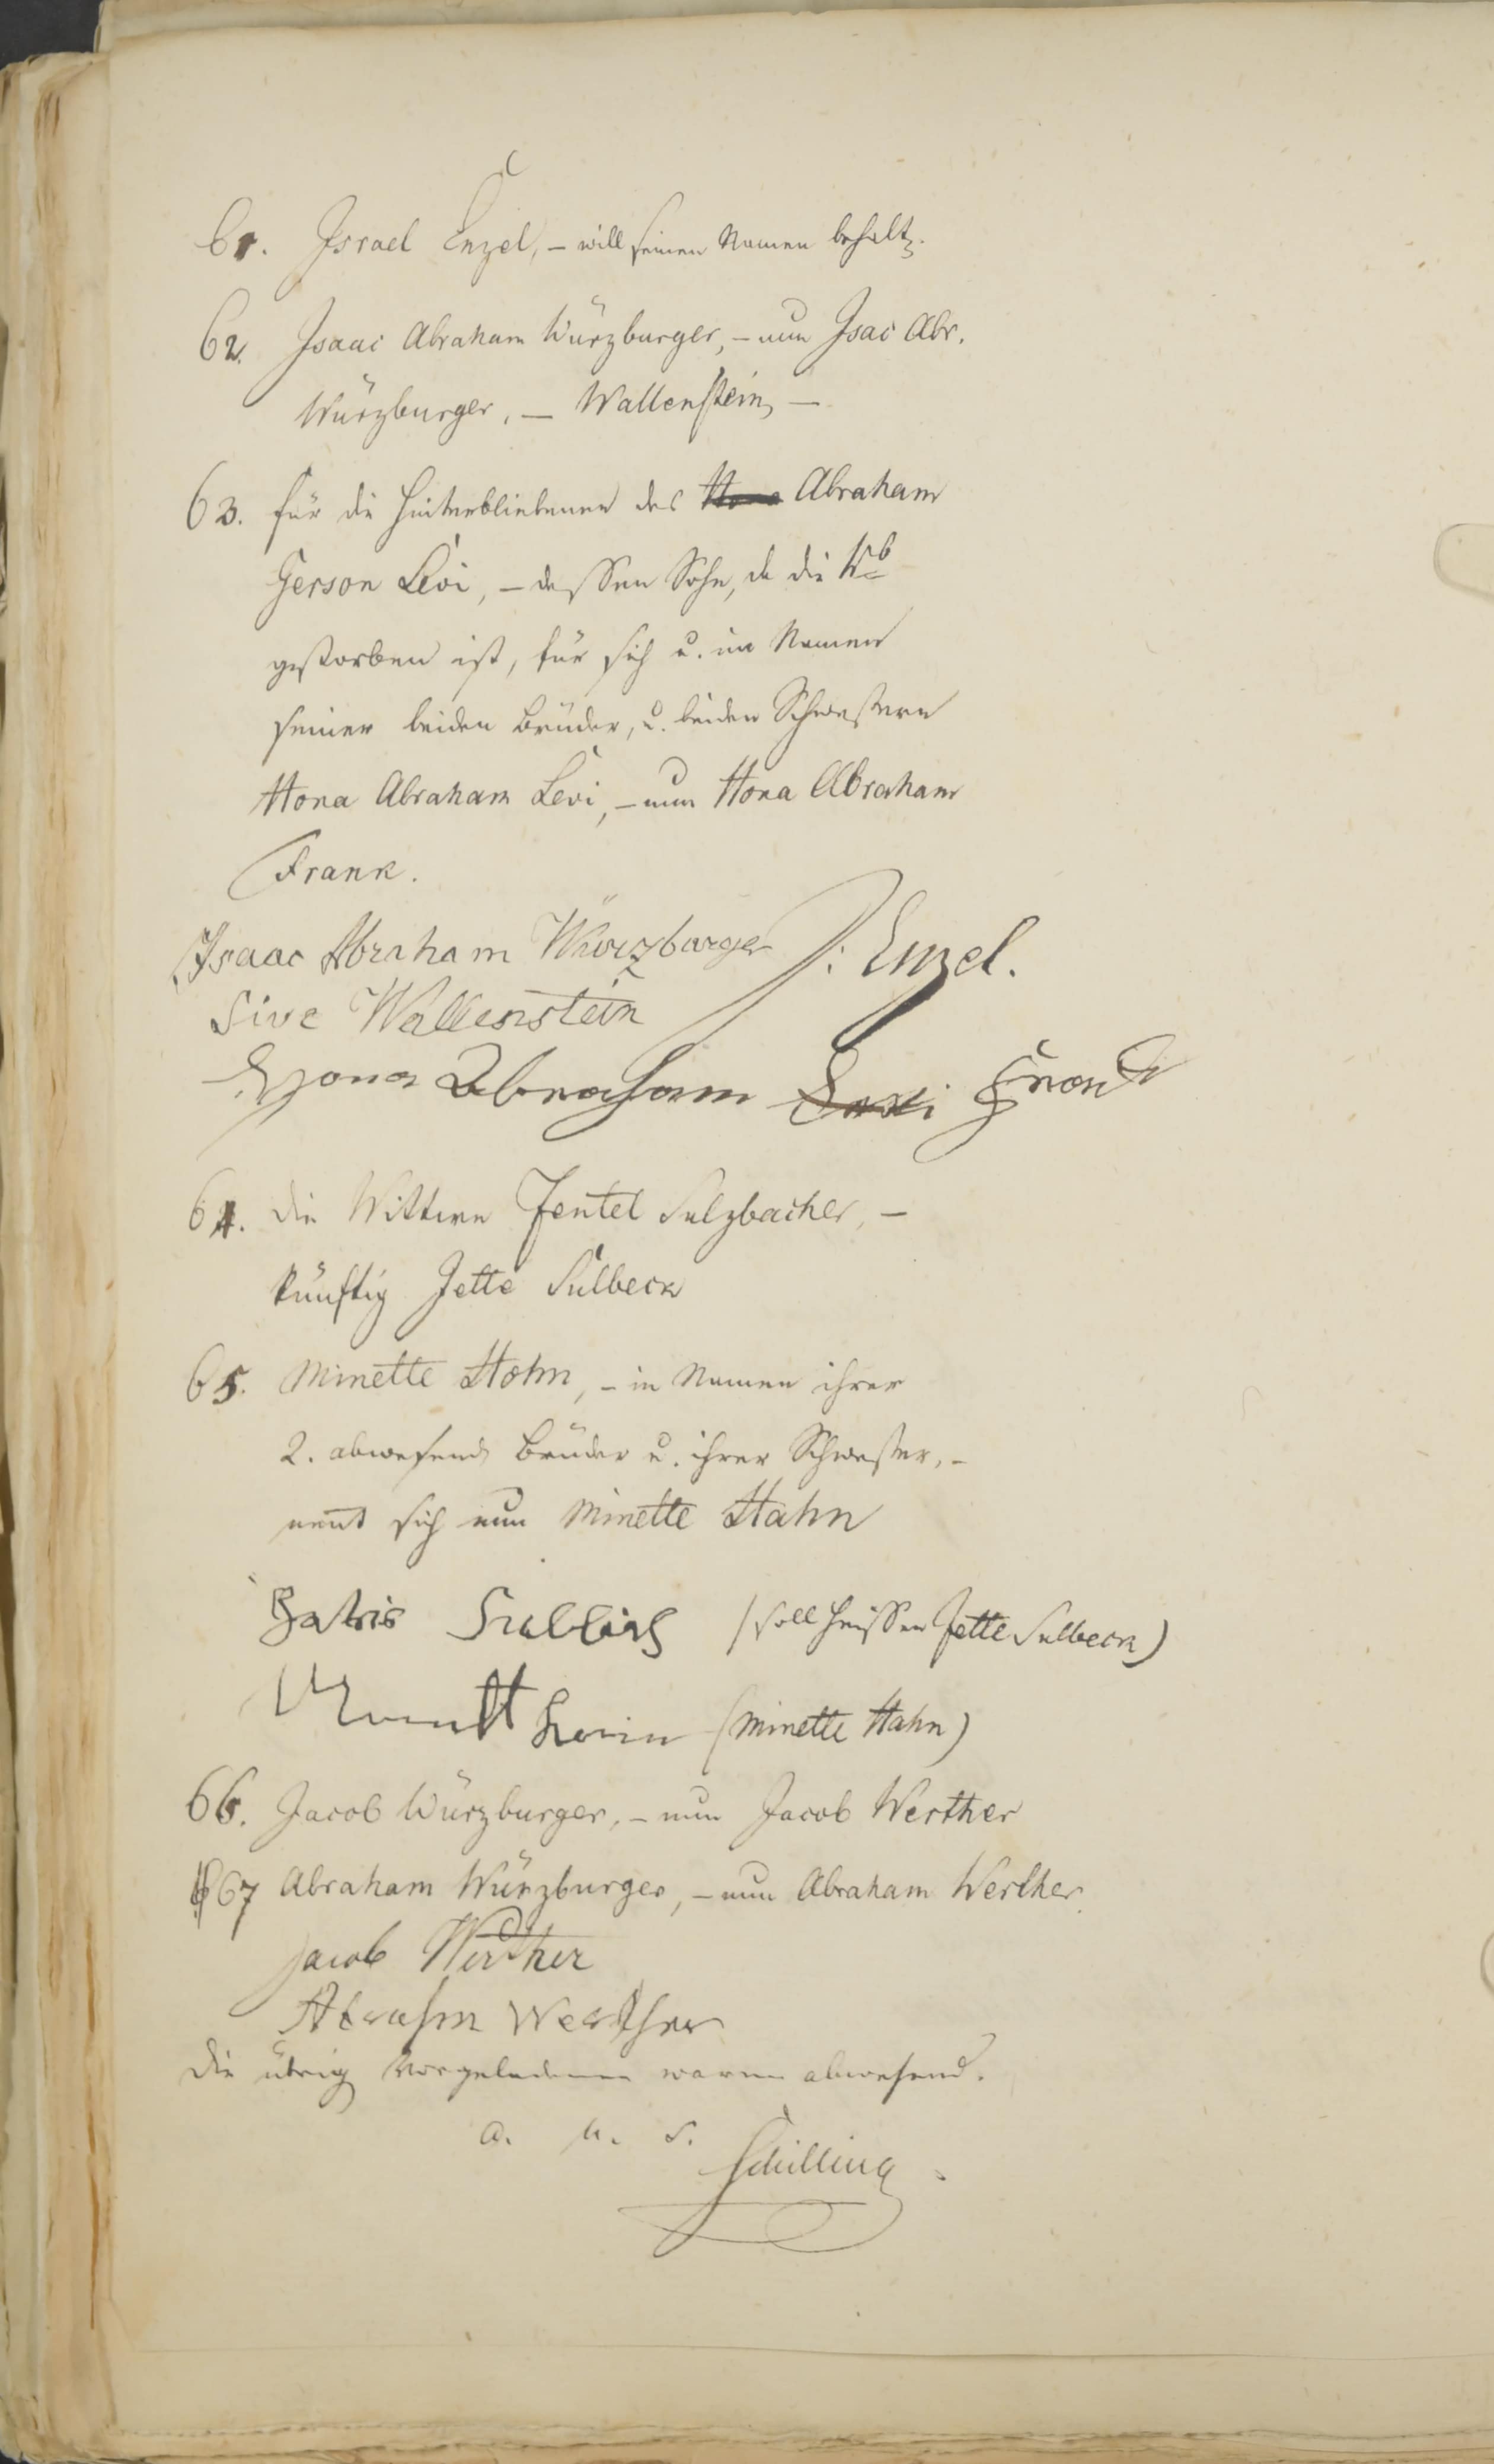 61. Israel Enzel, – will seinen Namen behalt.
62. Isaac Abraham Würzburger, – nun Isac Abr.
Würzburger, – Wallenstein, –
63. für die Hinterbliebenen des Hona Abraham
Gerson Levi, – dessen Sohn, da die Wb
gestorben ist, für sich u. im Namen
seiner beiden Brüder, u. beiden Schwestern
Hona Abraham Levi, – nun Hona Abraham
Frank.
Isaac Abraham Würzburger J: Enzel.
Sive Wallenstein
Hona Abraham Levi Frank
64. die Wittwe Jentel Sulzbacher, –
künftig Jette Sulbeck
65. Minette Hohn, – in Namen ihrer
2. abwesend Brüder u. ihrer Schwester, –
nent sich nun Minette Hahn
(soll heissen Jette Sulbeck)
(Minette Hahn)
66. Jacob Würzburger, – nun Jacob Werther
67 Abraham Würzburger, – nun Abraham Werther.
Jacob Werther
Abrahm Werther
die übrig Vorgeladenen waren abwesend.
a. u. s.
Schilling